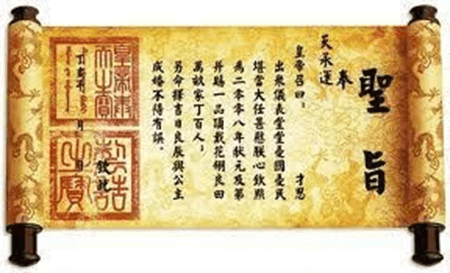 聖旨
奉
天承運
皇帝召曰：
才思
出衆儀表堂堂是國是民
堪當大任甚慰朕心欽點
為二〇〇八年狀元及第
并賜一品頂戴花翎良田
萬畝家丁百人；
另命擇吉日良辰與公主
成婚不得有誤。
欽此
製誥
之寶
月 日